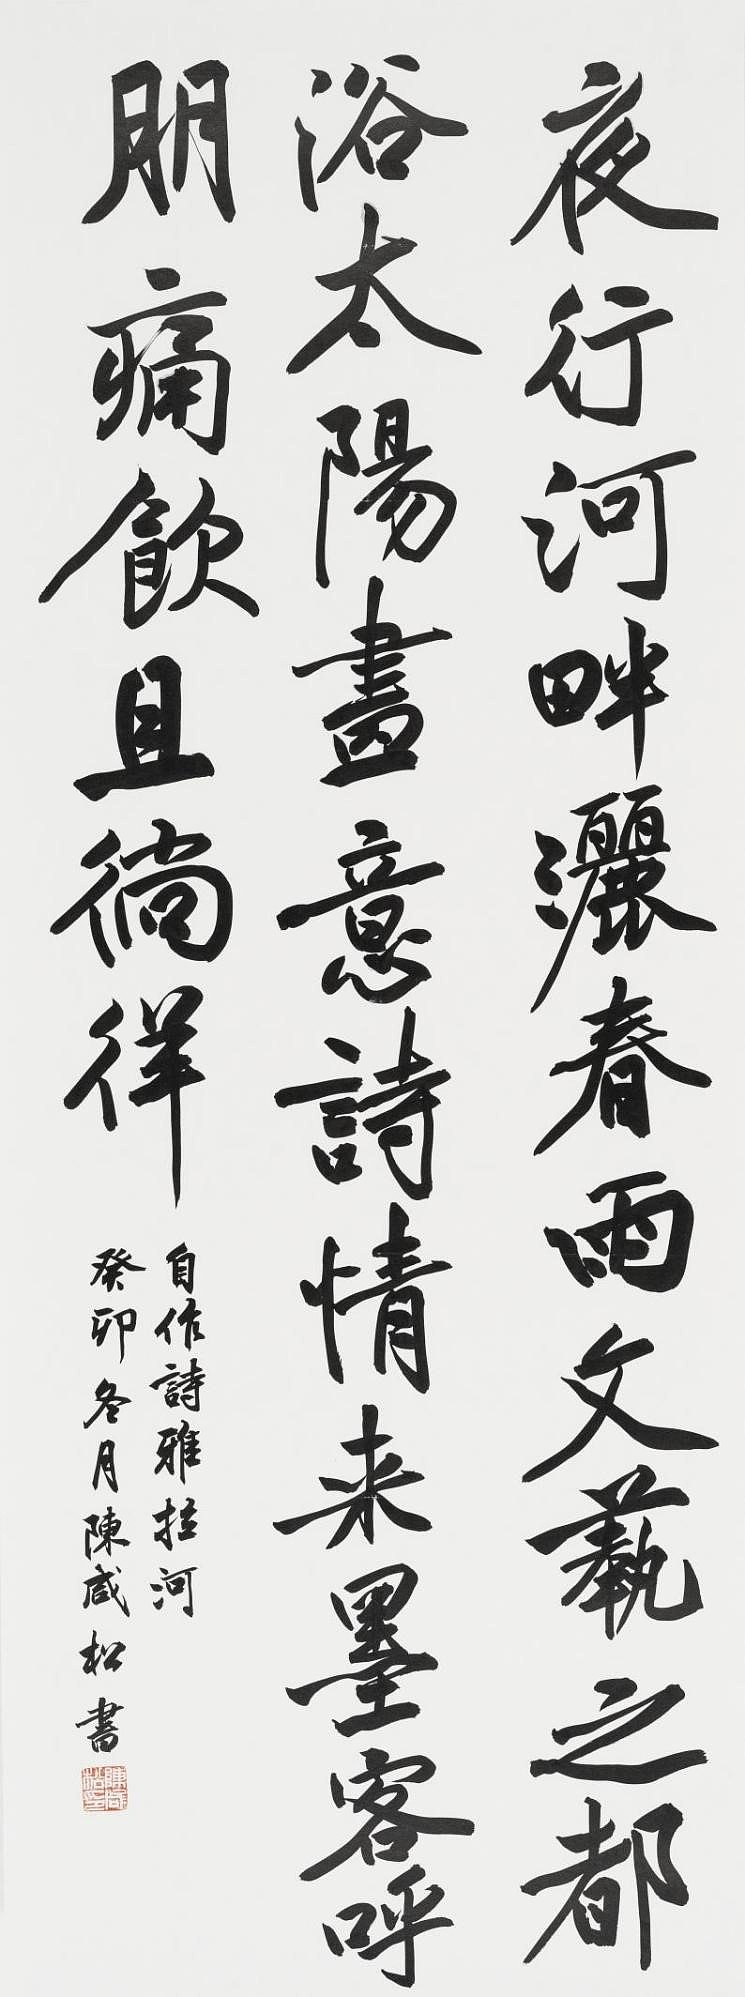 夜行河畔灑春雨文藝之都
浴太陽畫意詩情来墨客呼
朋痛飲且徜徉
自作詩雅拉河
癸卯冬月陳咸松書
陳咸松印